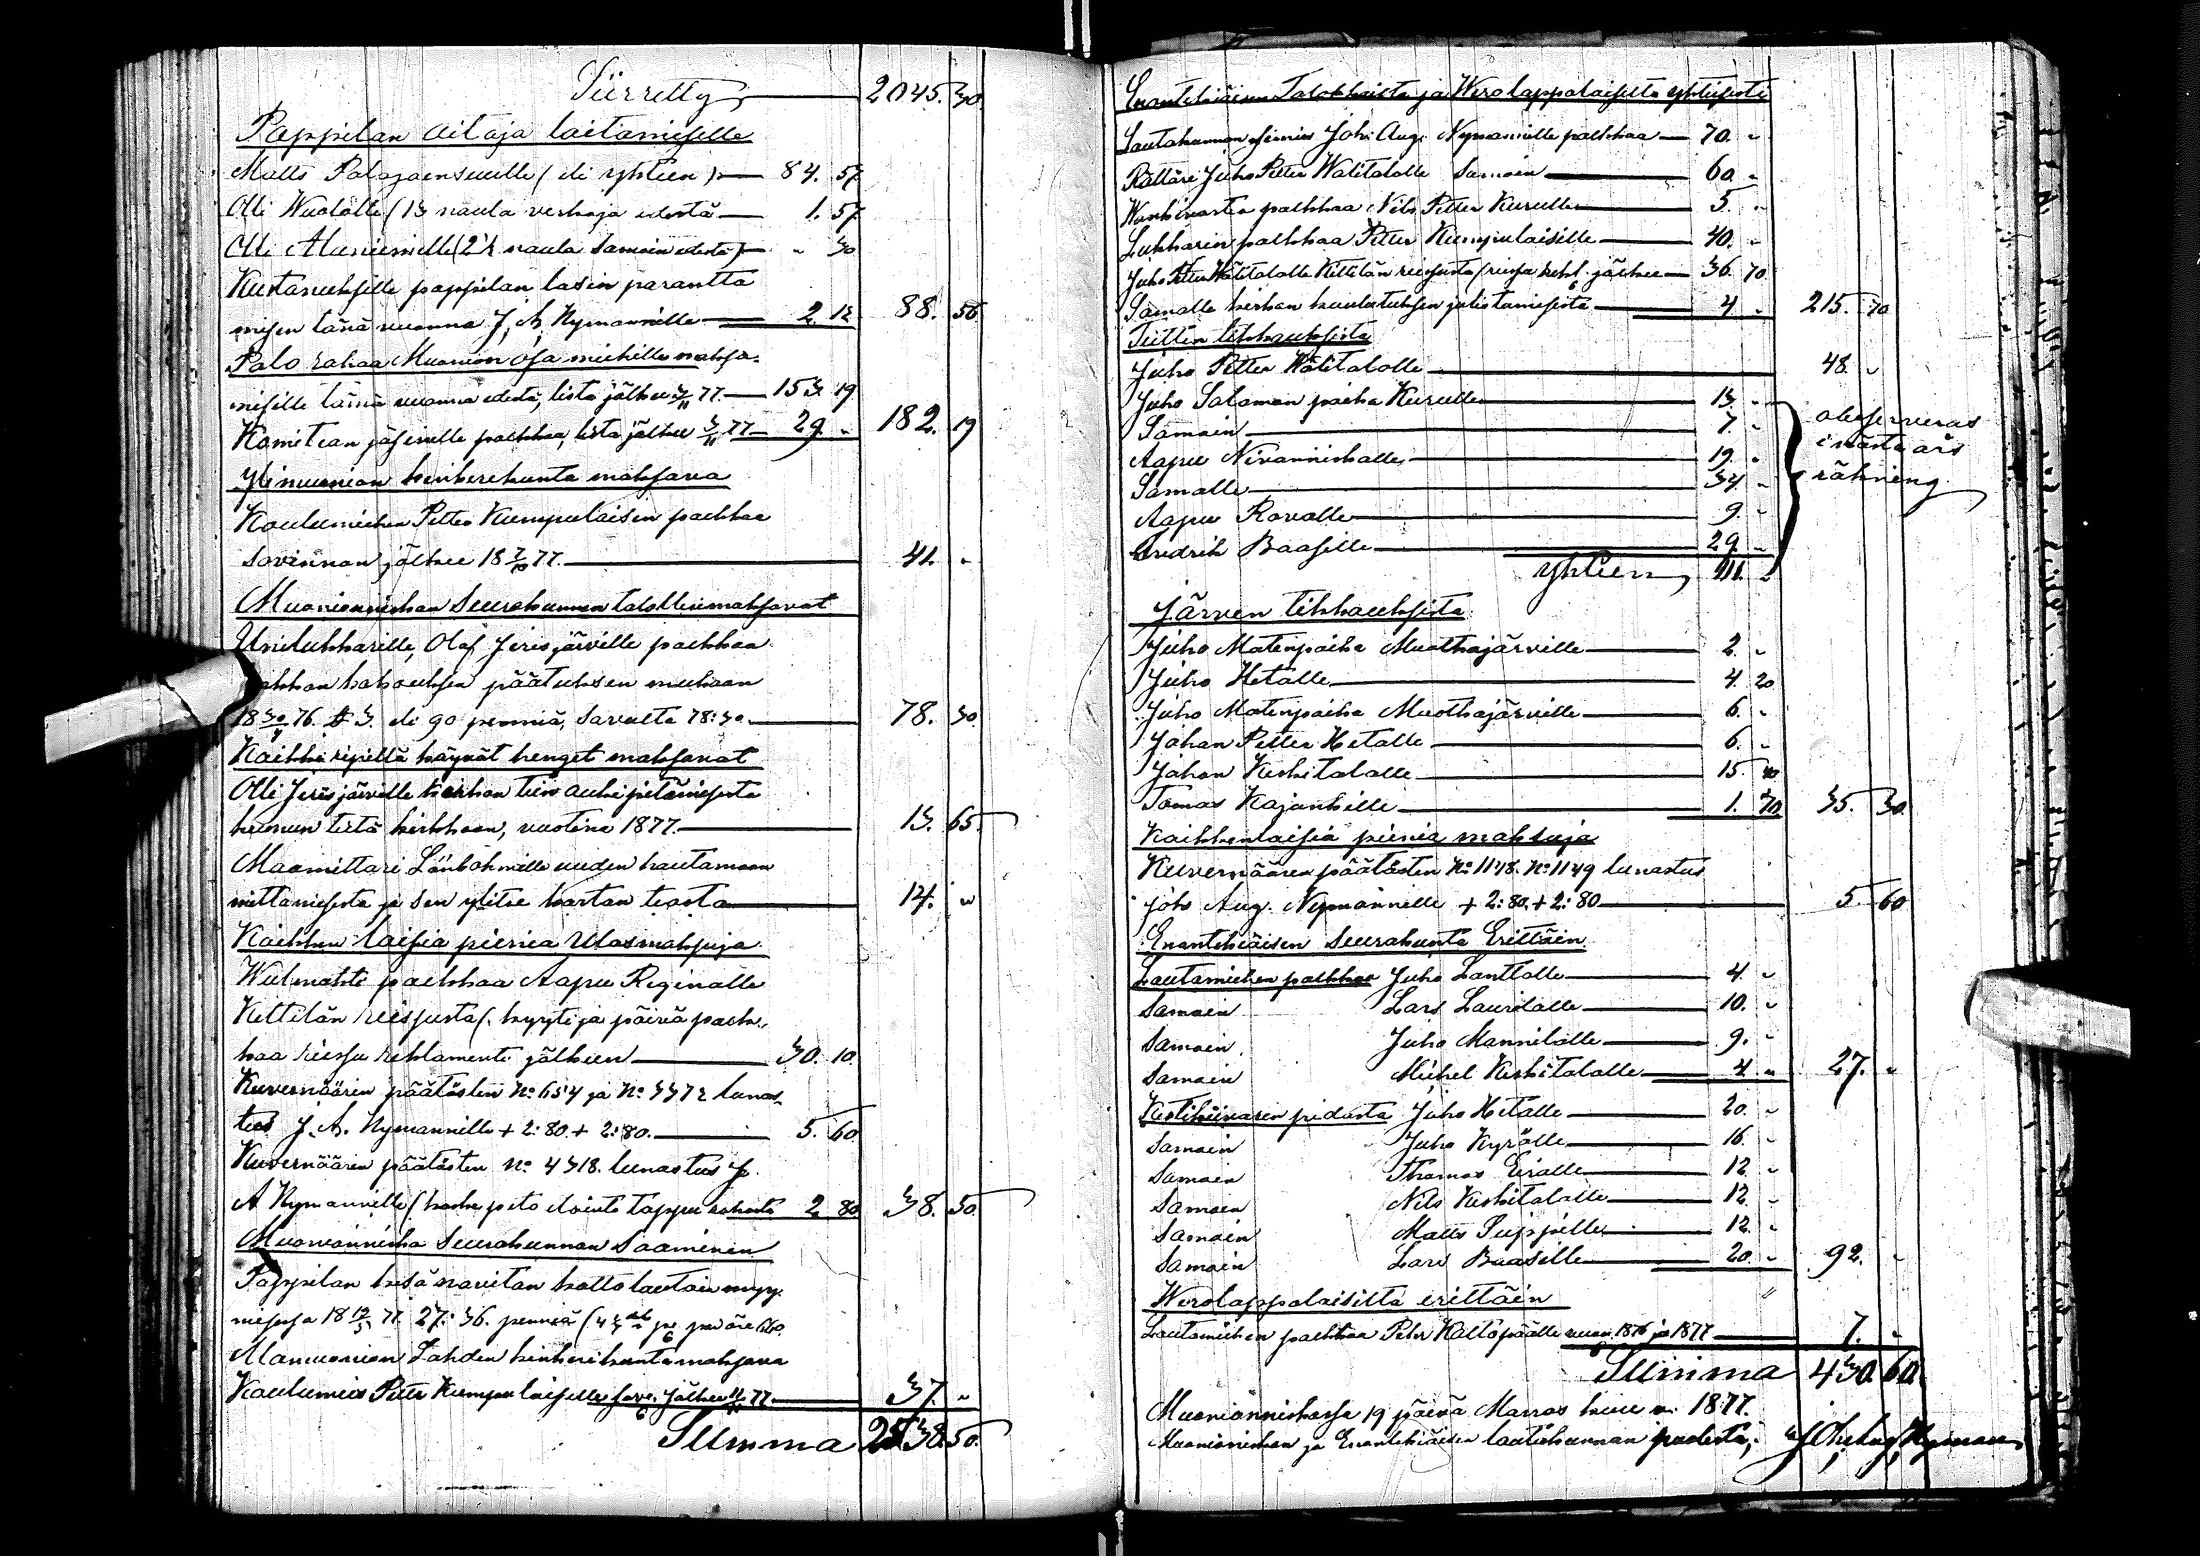 Siirretty 2045. 30
Pappilan aitaja laitamiselle
Matts Palojoensuulle (eli yhteen) 84. 57
Olli Wuotolle (13 naula verkoja edestä 1. 57
Olli Muoniomelle (2½ naula Samoin edestä) " 30
Kustanuksille pappilan lasin parantta
misen tänä vuonna J. A. Nymannille 2. 12 88. 56
Palo rahaa Muonion osa miehille maksa-
misille tämä vuonna edestä, lista jälkee 3/11 77. 153. 19
Komitean jäsenelle palkkaa, lista jälkee 3/11 77 29. " 182. 19
Ylimuonion kinkerekunta maksava
Koulumiehen Petter Kumpulaisen palkkaa
sovinnon jälkee 18 7/10 77. 41. "
Muonionniskan Seurakunnan talolliset maksavat
Unilukkarille, Olof Jerisjärville palkkaa
kirkkon kokouksen päätuksen mukaan
18 30/4 76. á 3. eli 90 penniä, savulta 78:30. 78. 30.
Kaikki ripillä käyvät henget maksavat
Olli Jerisjärville kirkon tien aukipitämisestä
kruunun tiestä kirkkoon, vuotina 1877. 13. 65.
Maamittari Lönbohmille uuden hautamaan
mittamisesta ja sen ylitse kartan teosta 14. "
Kaikken laisia pieniea Ulosmaksuja
Wulmahti palkkaa Aapu Reginalle
Kittilän reissusta (kyyti ja päivä palk-
kaa reissu reklamenti jälkeen 30. 10.
Kuvernöörin päätösten No 654 ja No 3372 lunas-
tus J. A. Nymannille + 2:80. + 2:80. 5. 60
Kuvernöörin päätösten No 4318. lunastus J.
A Nymannille 2 80 38. 50.
Muonionniska Seurakunnan Saaminen
Pappilan kesä navitan katto lautain myy-
misessä 18 12/5 77. 27:36. penniä
Alamuonion Lahden kinkerikunta maksava
Koulumies Petter Kumpulaiselle sov. jälkee 77. 37. "
Summa 2538. 50.
Enontekiäisen Talokkaista ja Werolappalaiselta yhteisesti
Lautakunnan esimies Joh. Aug. Nymannille palkkaa 70. "
Rättäre Juho Petter Wälitalolle Samoin 60 "
Wankivartia palkkaa Nils Petter Kurulle 5. "
Lukkarin palkkaa Petter Kumpulaisille 40. "
Juho Petter Wälitalolle Kittilän reissusta (reissu rekl. jälkee 36. 70
Samalle kirkon kuulutuksen julistamisesta 4 " 215. 70
Teitten tikkauksista
Juho Petter Wälitalolle 48. "
Juho Salomon poika Kurulle 13 "
Samoin 7 "
Aapu Nivanniskalle 19 "
Samalle 34 "
Aapu Rovalle 9. "
Fredrik Baasille 29 "
observeras
i nästa års
räkning.
yhteen, 111. "
Järven tikkauksista
Juho Matenpoika Muotkajärville 2. "
Juho Hetalle 4. 20
Juho Matenpoika Muotkajärville 6. "
Johan Petter Hetalle 6. "
Johan Keskitalolle 15. 40
Tomas Kajankille 1. 70 35. 30
Kaikkenlaisia pienia maksuja
Kuvernöören päätösten No 1148. No 1149 lunastus
Joh. Aug. Nymannille + 2:80. + 2:80 5. 60
Enontekiäisen Seurakunta Erittäin
Lautamiehen palkkaa Juho Lanttolle 4 "
Samoin Lars Laurilalle 10. "
Samoin Juho Mannilalle 9. "
Samoin Mickel Keskitalolle 4 " 27. "
Kestikiivaren pidosta Juho Hetalle 20. "
Samoin Juho Kyrölle 16. "
Samoin Thomas Eiralle 12 "
Samoin Nils Keskitalolle 12. "
Samoin Matts Suppille 12. "
Samoin Lars Baasille 20. " 92. "
Werolappalaisilta erittäin
Lautamiehen palkkaa Peter Kaltopäälle vuon. 1876 ja 1877 7. "
Summa 430. 60.
Muonionniskassa 19 päivä Marras kuue v. 1877.
Muonioniskan ja Enontekiäisen lautakunnan puolesta,